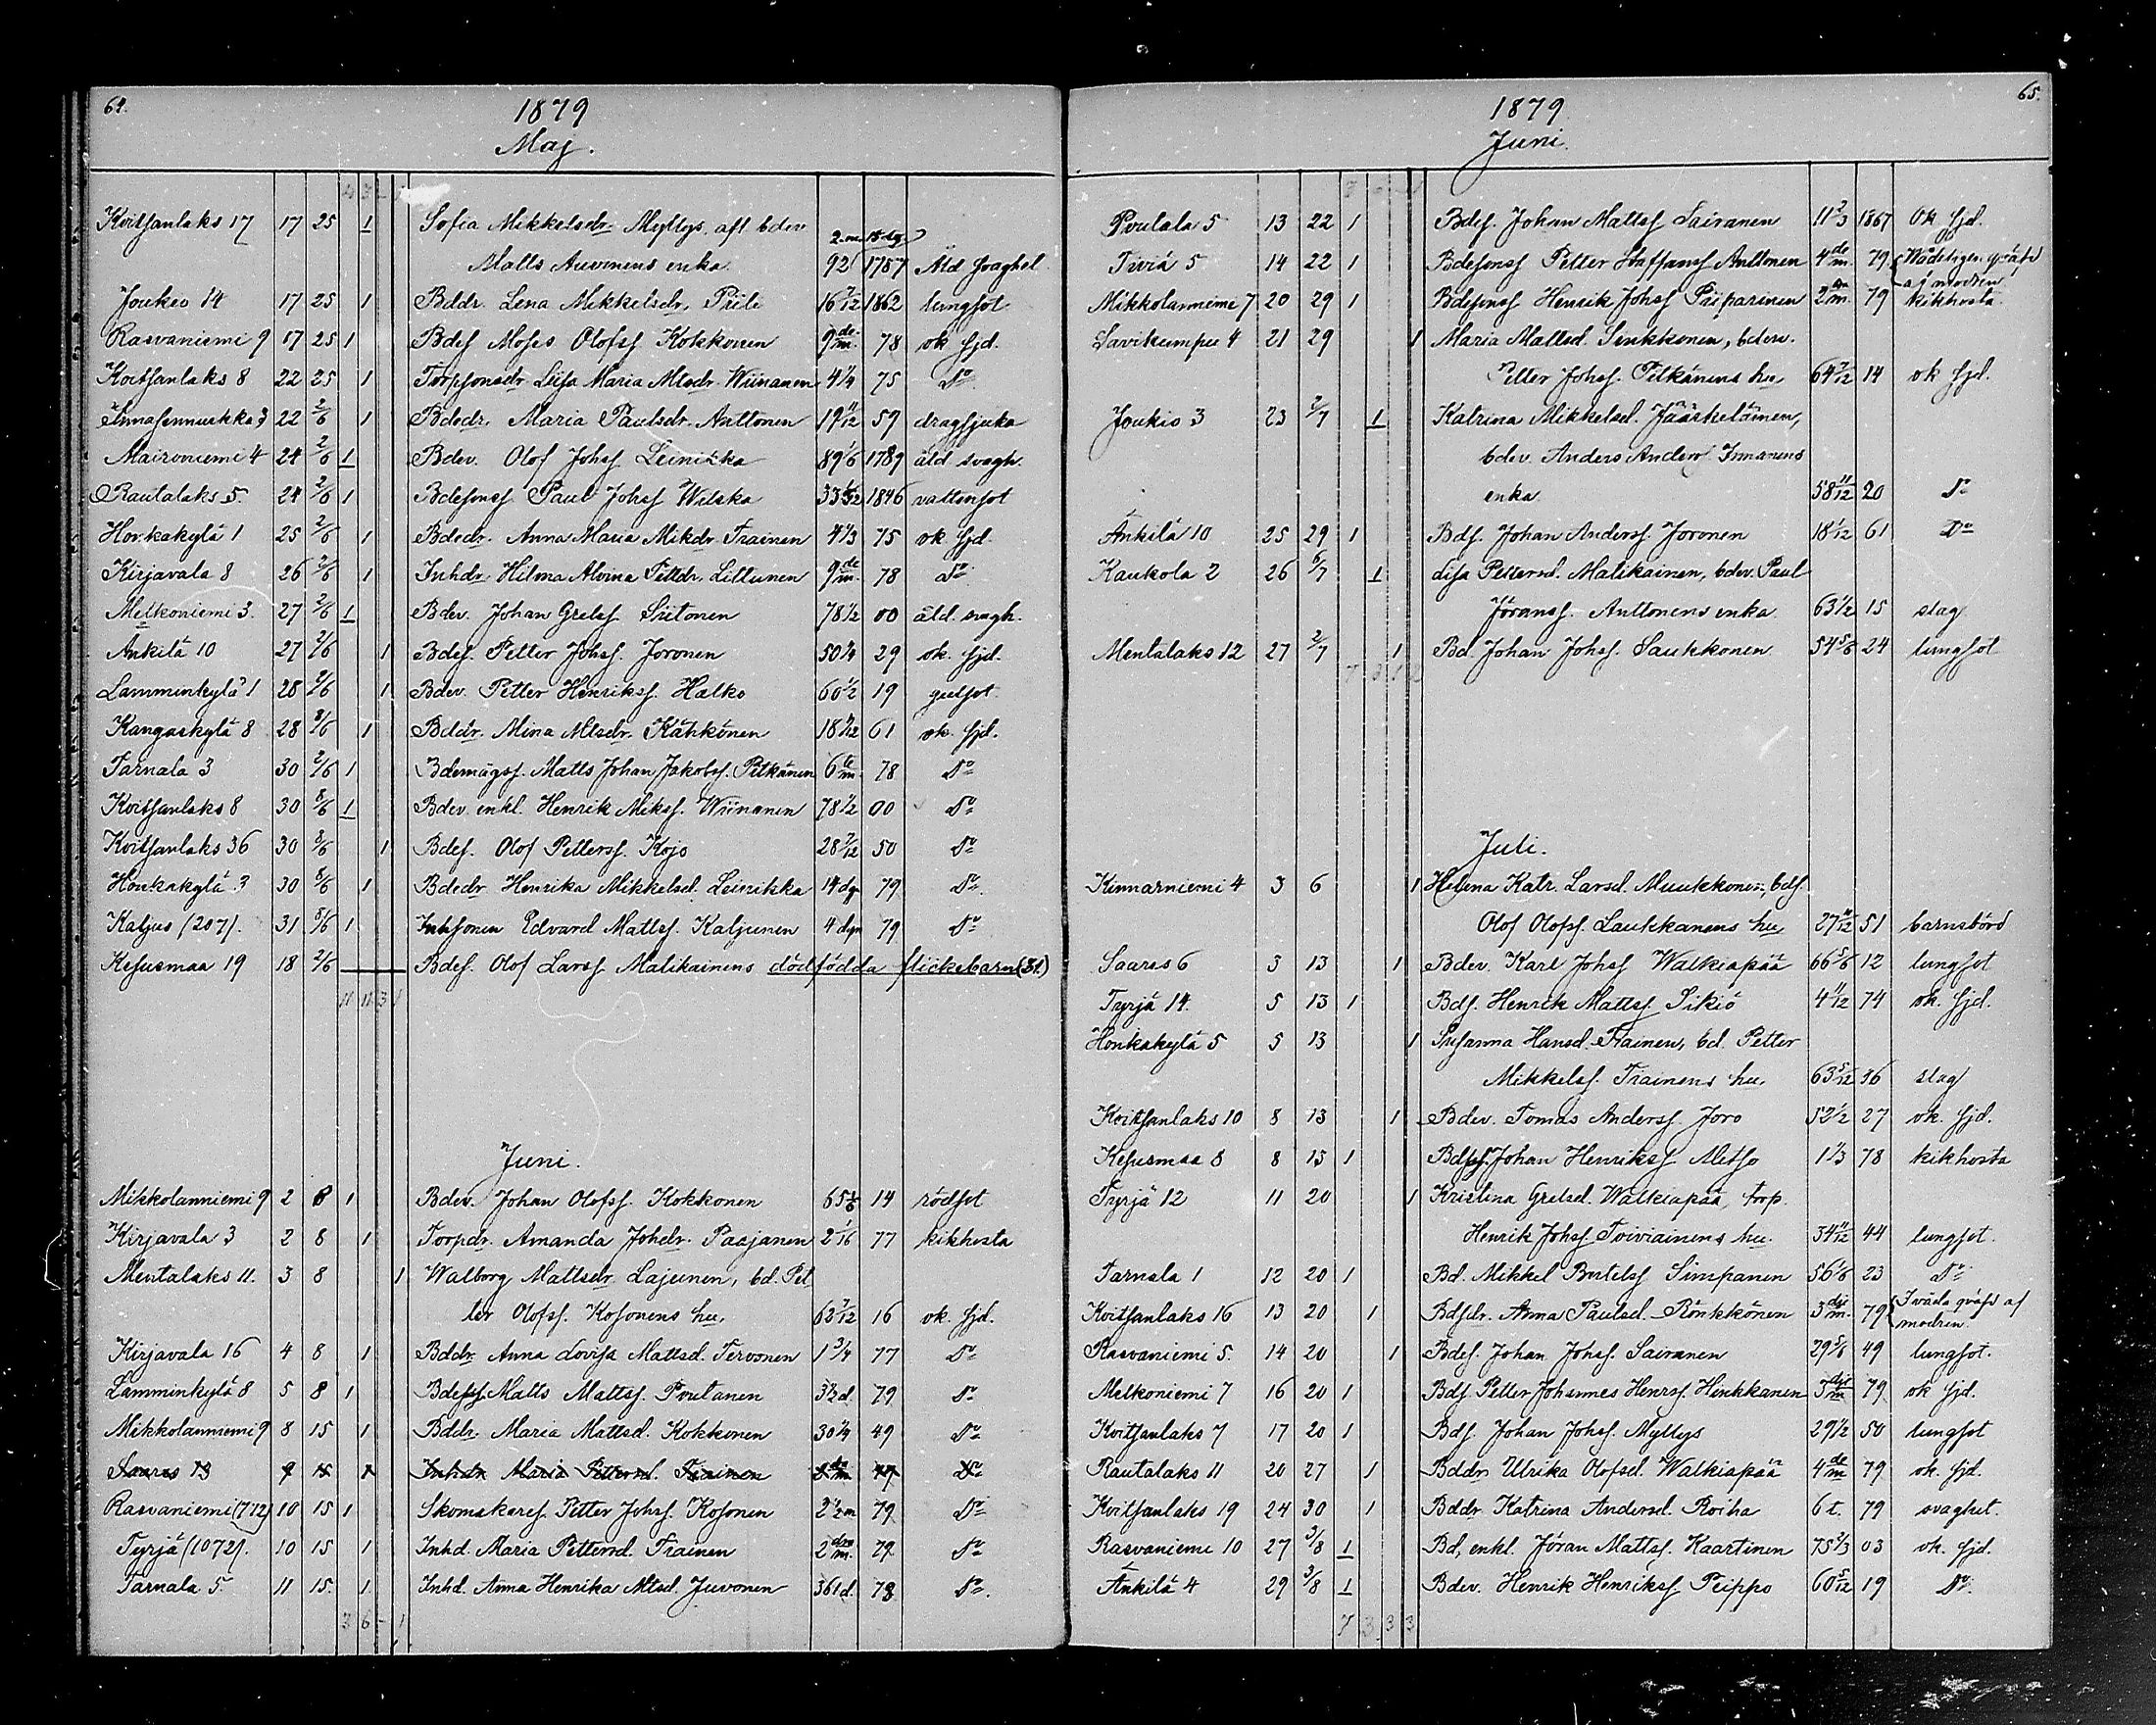 64.
1879
Maj.
Koitsanlaks 17 17 25 1 Sofia Mikkelsdr. Myllys, afl. bdev
2 m. 15 dg.
Matts Auvinens enka 92 1787 Åld. svaghet
Joukio 14 17 25 1 Bddr. Lena Mikkelsdr. Piili 16 7/12 1862 lungsot
Rasvaniemi 9 17 25 1 Bdes. Moses Olofss. Kokkonen 9 de m. 78 ok. sjd.
Koitsanlaks 8 22 25 1 Torpsonsdr. Lisa Maria Mtsdr. Wiinanen 4 1/4 75 Do
Innasennukka 3 22 2/6 1 Bdedr. Maria Paulsdr. Anttonen 19 11/12 59 dragsjuka
Mäironiemi 4 24 2/6 1 Bdev. Olof Johss. Leinikka 89 1/6 1789 åld. svagh.
Rautalaks 5. 24 2/6 1 Bdesonss. Paul Johss. Wilska 33 5/12 1846 vattensot
Honkakylä 1 25 2/6 1 Bdedr. Anna Maria Mikdr. Träinen 4 1/3 75 ok. sjd.
Kirjavala 8 26 2/6 1 Inhdr. Hilma Alvina Pettdr. Littunen 9 de m. 78 Do
Melkoniemi 3. 27 2/6 1 Bdev. Johan Grelss. Siitonen 78 1/2 00 åld. svagh.
Ankilä 10 27 2/6 1 Bdes. Petter Johss. Joronen 50 1/4 29 ok. sjd.
Lamminkylä 1 28 2/6 1 Bdev. Petter Henrikss. Halko 60 1/2 19 gulsot
Kangaskylä 8 28 8/6 1 Bddr. Mina Mtsdr. Kähkönen 18 1/12 61 ok. sjd.
Tarnala 3 30 2/6 1 Bdemågss. Matts Johan Jakobss. Pitkänen 6 te m. 78 Do
Koitsanlaks 8 30 8/6 1 Bdev. enkl. Henrik Mikss. Wiinanen 78 1/2 00 Do
Koitsanlaks 36 30 8/6 1 Bdes. Olof Petterss. Kojo 28 7/12 50 Do
Honkakylä 3 30 8/6 1 Bdedr. Henrika Mikkelsd. Leinikka 14 dg 79 Do
Kaljus (207). 31 8/6 1 Inhsonen Edvard Mattss. Kaljunen 4 dgn 79 Do
Kesusmaa 19 18 2/6 Bdes. Olof Larss. Malikainens dödfödda flickebarn (31)
11 11 3 1
Juni.
Mikkolanniemi 9 2 8 1 Bdev. Johan Olofss. Kokkonen 65 1/6 14 rödsot
Kirjavala 3 2 8 1 Torpdr. Amanda Johdr. Paajanen 2 1/6 77 kikhosta
Mentalaks 11. 3 8 1 Walborg Mattsdr. Lajunen, bd. Pet
ter Olofss. Kosonens hu, 62 7/12 16 ok. sjd.
Kirjavala 16 4 8 1 Bddr. Anna Lovisa Mattsd. Tervonen 1 3/4 77 Do
Lamminkylä 8 5 8 1 Bdess. Matts Mattss. Poutanen 3 1/2 d. 79 Do
Mikkolanniemi 9 8 15 1 Bddr. Maria Mattsd. Kokkonen 30 1/4 49 Do
Saaras 13 9 15 1 Inhdr. Maria Pettersd. Träinen 2 dra m 79 Do
Rasvaniemi (712) 10 15 1 Skomakares. Petter Johss. Kosonen 2 1/2 m 79 Do
Tyrjä (1072). 10 15 1 Inhd. Maria Pettersd. Träinen 2 dra m. 79 Do
Tarnala 5. 11 15. 1 Inhd. Anna Henrika Mtsd. Juvonen 361 d. 78 Do
3 6 - 1
65.
1879
Juni.
Poutala 5 13 22 1 Bdes. Johan Mattss. Sairanen 11 2/3 1867 Ok. sjd.
Tiviä 5 14 22 1 Bdesons Petter Staffanss. Anttonen 4 de m. 79 Wådeligen qväfd
af modren
Mikkolanniemi 7 20 29 1 Bdesons Henrik Johss. Piiparinen 2 m. 79 kikhosta
Savikumpu 4 21 29 1 Maria Mattsd. Sinkkonen, bdev.
Petter Johss. Pitkänens hu 64 7/12 14 ok sjd.
Joukio 3 23 2/7 1 Katrina Mikkelsd. Jääskeläinen,
bdev. Anders Anderss. Immonens
enka 58 11/12 20 Do
Änkilä 10 25 29 1 Bds. Johan Anderss. Joronen 18 1/12 61 Do
Kaukola 2 26 6/7 1 Lisa Pettersd. Malikainen, bdev. Paul
Jöranss. Anttonens enka 63 1/2 15 slag
Mentalaks 12 27 2/7 1 Bd. Johan Johss. Saukkonen 54 5/6 24 lungsot
Juli.
Kinnarniemi 4 3 6 1 Helena Katr. Larsd. Muukkonen, bds.
Olof Olofss. Laukkanens hu 27 11/12 51 barnsbörd
Saaras 6 3 13 1 Bdev. Karl Johss. Walkiapää 66 5/6 12 lungsot
Tyrjä 14. 5 13 1 Bds. Henrik Mattss. Sikiö 4 11/12 74 ok. sjd.
Honkakylä 5 5 13 1 Susanna Hansd. Träinen, bd. Petter
Mikkelss. Träinens hu. 63 5/12 36 slag
Koitsanlaks 10 8 13 1 Bdev. Tomas Anderss. Joro 52 1/2 27 ok. sjd.
Kesusmaa 8 8 15 1 Bdss. Johan Henrikss. Metso 1 1/3 78 kikhosta
Tyrjä 12 11 20 1 Kristina Grelsd. Walkiapää, torp.
Henrik Johss. Toiviainens hu. 34 11/12 44 lungsot.
Tarnala 1 12 20 1 Bd. Mikkel Bertelss. Simpanen 56 1/6 23 Do
Koitsanlaks 16 13 20 1 Bdsdr. Anna Paulsd. Rönkkönen 3 dje m. 79 I våda qväfd af
modren.
Rasvaniemi 5. 14 20 1 Bdes. Johan Johss. Sairanen 29 5/6 49 lungsot.
Melkoniemi 7 16 20 1 Bds. Petter Johannes Henrss. Hinkkanen 3 dje m 79 ok. sjd.
Koitsanlaks 7 17 20 1 Bds. Johan Johss. Myllys 29 1/2 50 lungsot
Rautalaks 11 20 27 1 Bddr. Ulrika Olofsd. Walkiapää 4 de m 79 ok. sjd.
Koitsanlaks 19 24 30 1 Bddr. Katrina Andersd. Roiha 6 t. 79 svaghet.
Rasvaniemi 10 27 3/8 1 Bd, enkl. Jöran Mattss. Kaartinen 75 2/3 03 ok. sjd.
Änkilä 4 29 3/8 1 Bdev. Henrik Henrikss. Peippo 60 5/12 19 Do
7 3 3 3